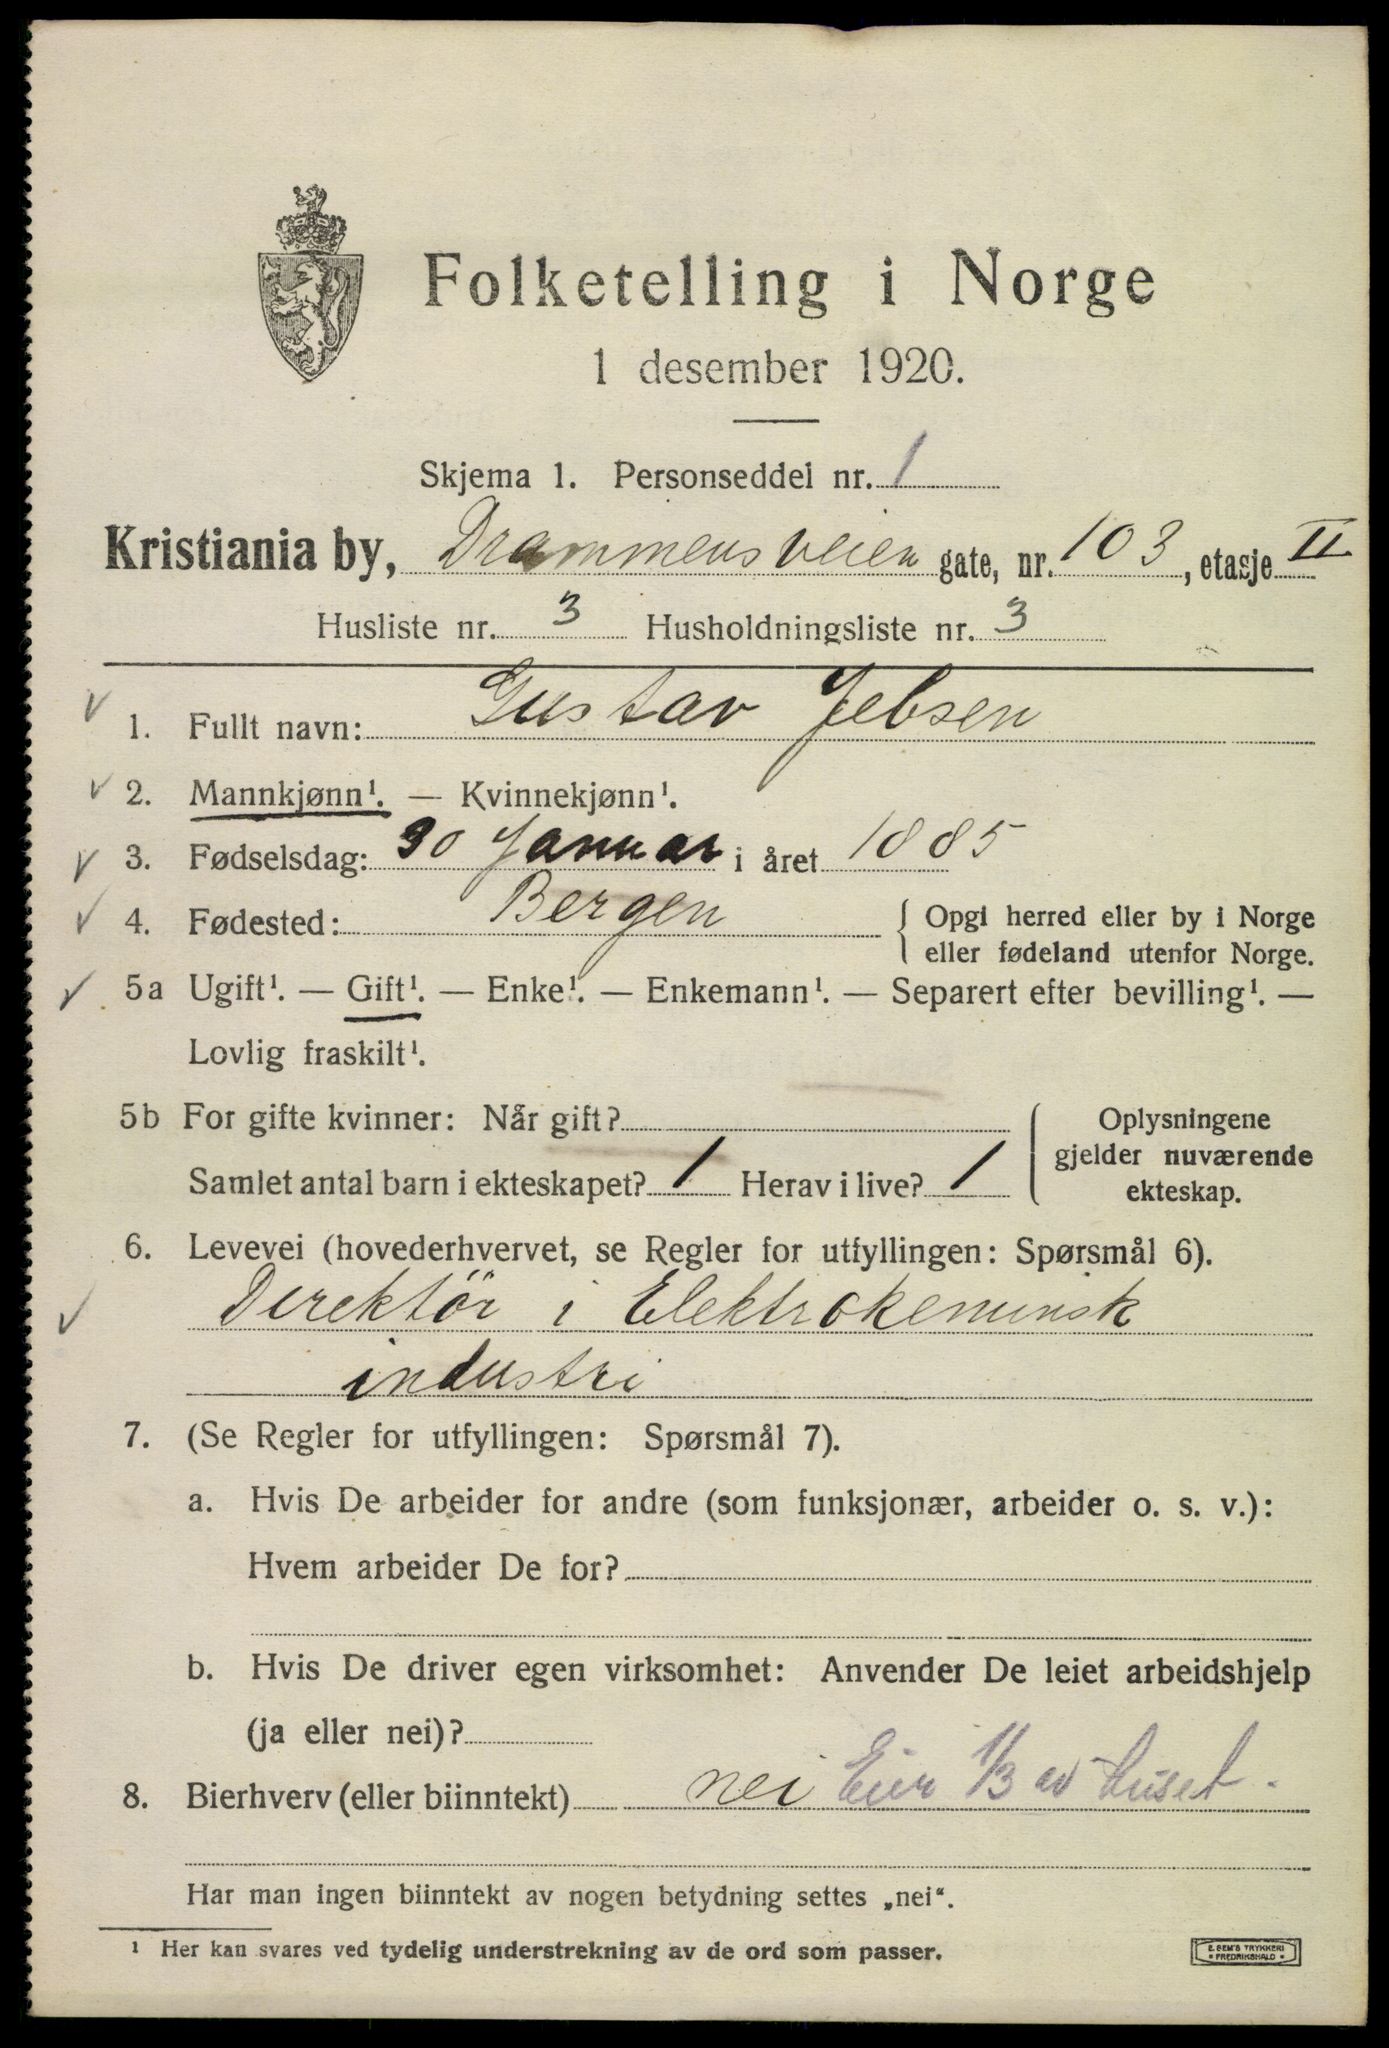 Folketelling i Norge
1 desember 1920.
Skjema 1. Personseddel nr. 1
Kristiania by, Drammensveien gate, nr. 103, etasje II
Husliste nr. 3 Husholdningsliste nr. 3
1. Fullt navn: Gustav Jebsen
2. Mannkjønn¹. — Kvinnekjønn¹.
3. Fødselsdag: 30 Januar i året 1885
4. Fødested: Bergen { Opgi herred eller by i Norge
eller fødeland utenfor Norge.
5a Ugift¹. — Gift¹. — Enke¹. — Enkemann¹. — Separert efter bevilling¹. —
Lovlig fraskilt¹.
5b For gifte kvinner: Når gift? { Oplysningene
gjelder nuværende
Samlet antal barn i ekteskapet? 1 Herav i live? 1
ekteskap.
6. Levevei (hovederhvervet, se Regler for utfyllingen: Spørsmål 6).
Direktör i Elektrokeminsk
industri
7. (Se Regler for utfyllingen: Spørsmål 7).
a. Hvis De arbeider for andre (som funksjonær, arbeider o. s. v.):
Hvem arbeider De for?
b. Hvis De driver egen virksomhet: Anvender De leiet arbeidshjelp
(ja eller nei)?
8. Bierhverv (eller biinntekt) nei Eier 1/3 av huset.
Har man ingen biinntekt av nogen betydning settes „nei“.
¹ Her kan svares ved tydelig understrekning av de ord som passer.
E. SEM'S TRYKKERI
• FREDRIKSHALD •